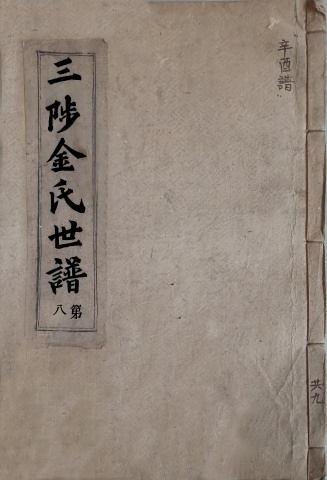 辛酉譜
三陟金氏世譜
第八
共九